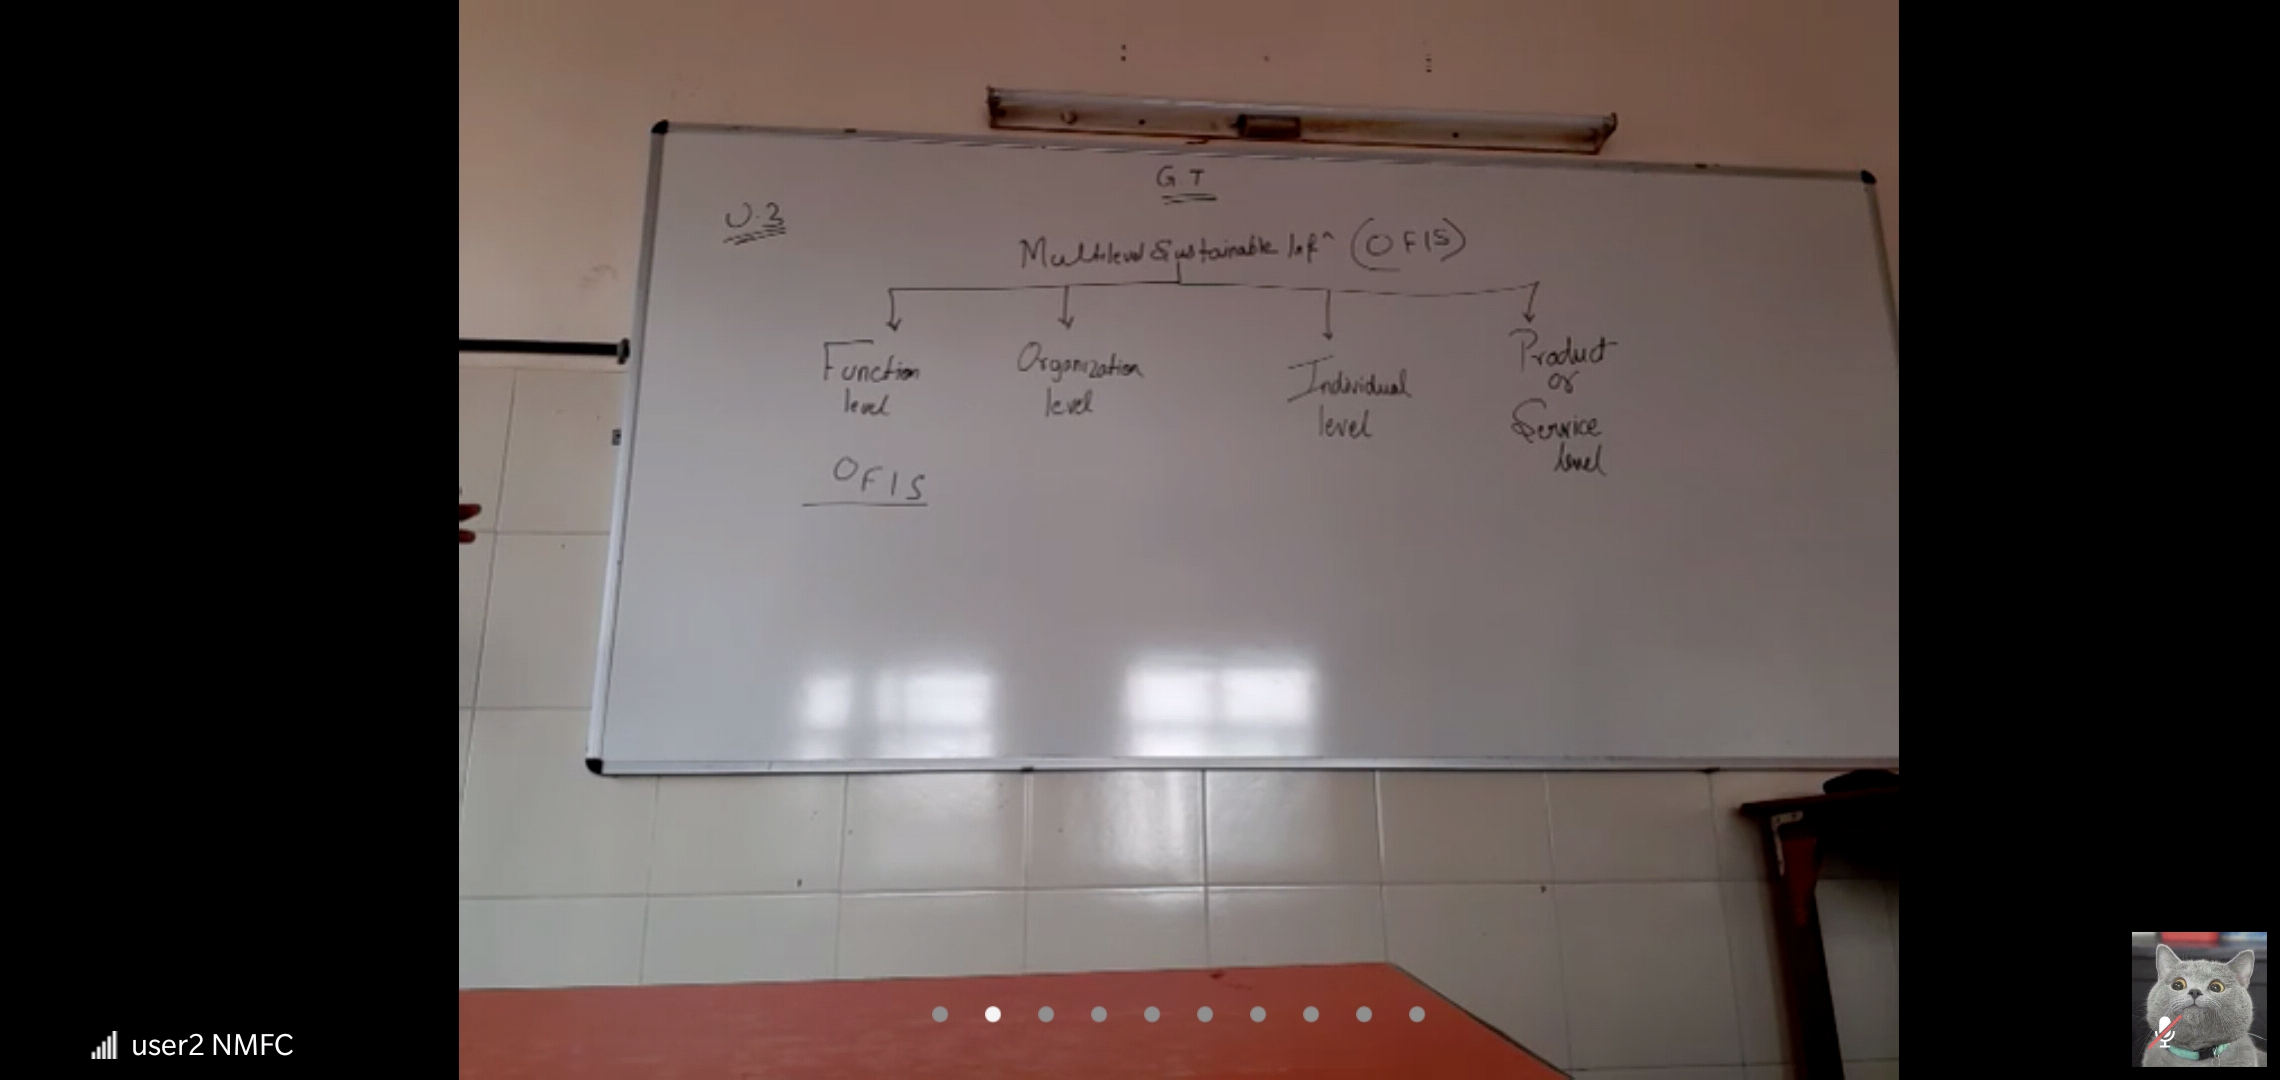 G T
U.3
Multilevel Sustainable Infⁿ (OFIS)
Function level
Organization level
Individual level
Product or Service level
OFIS
user2 NMFC